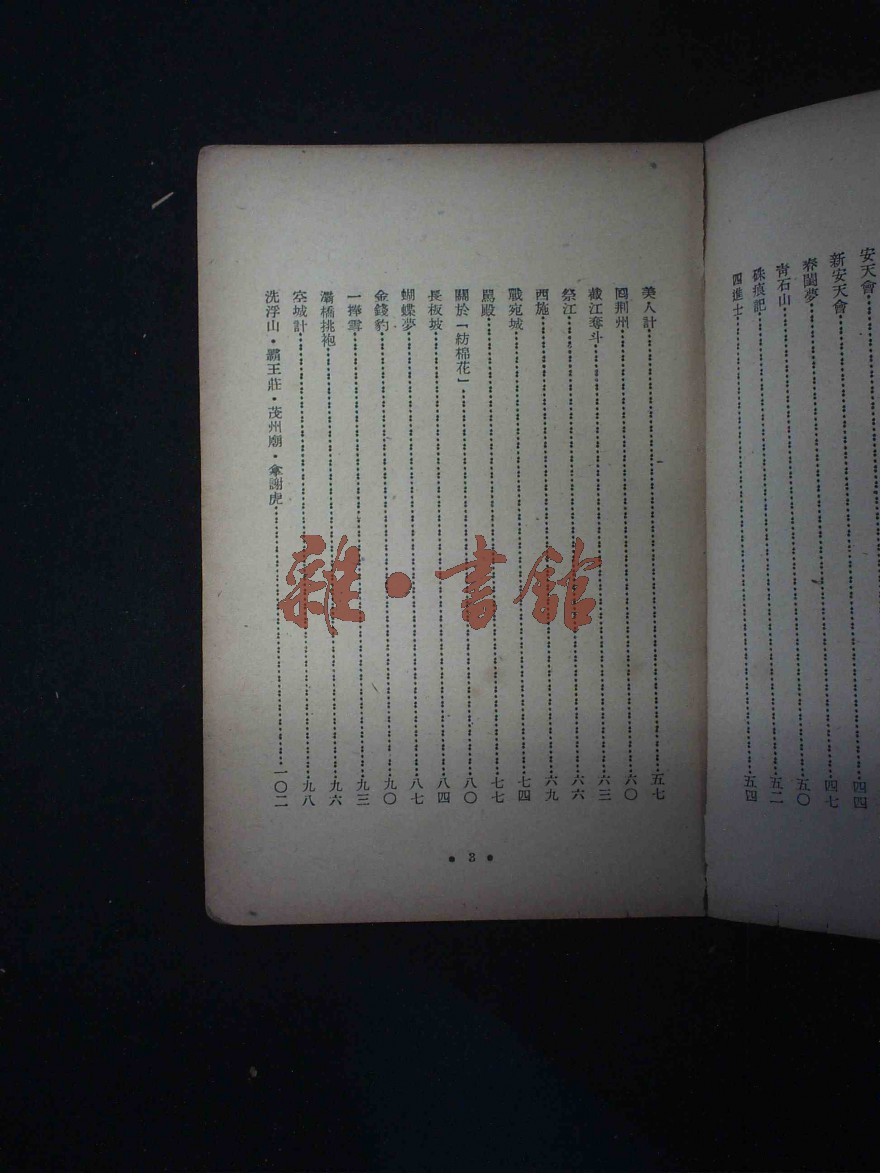 安天會……四四
新安天會……四七
春閨夢……五〇
青石山……五二
硃痕記……五四
四進士
美人計……五七
回荊州……六〇
截江奪斗……六三
祭江……六六
西施……六九
戰宛城……七四
罵殿……七七
關於「紡棉花」……八〇
長板坡……八四
蝴蝶夢……八七
金錢豹……九〇
一捧雪……九三
灞橋挑袍……九六
空城計……九八
洗浮山・霸王莊・茂州廟・拿謝虎……一〇二
• 3 •
雜・書館